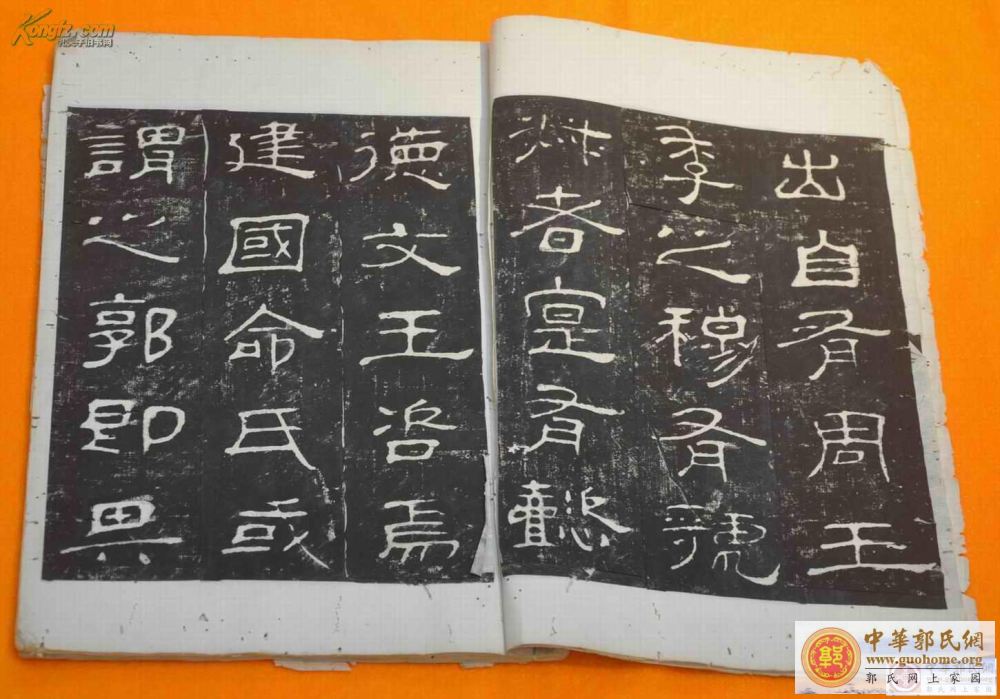 出自有周王
季之穆有虢
叔者寔有懿
德文王咨焉
建國命氏或
謂之郭即其
Kongfz.com
孔夫子旧书网
郭
中華郭氏網
www.guohome.org
郭氏网上家园